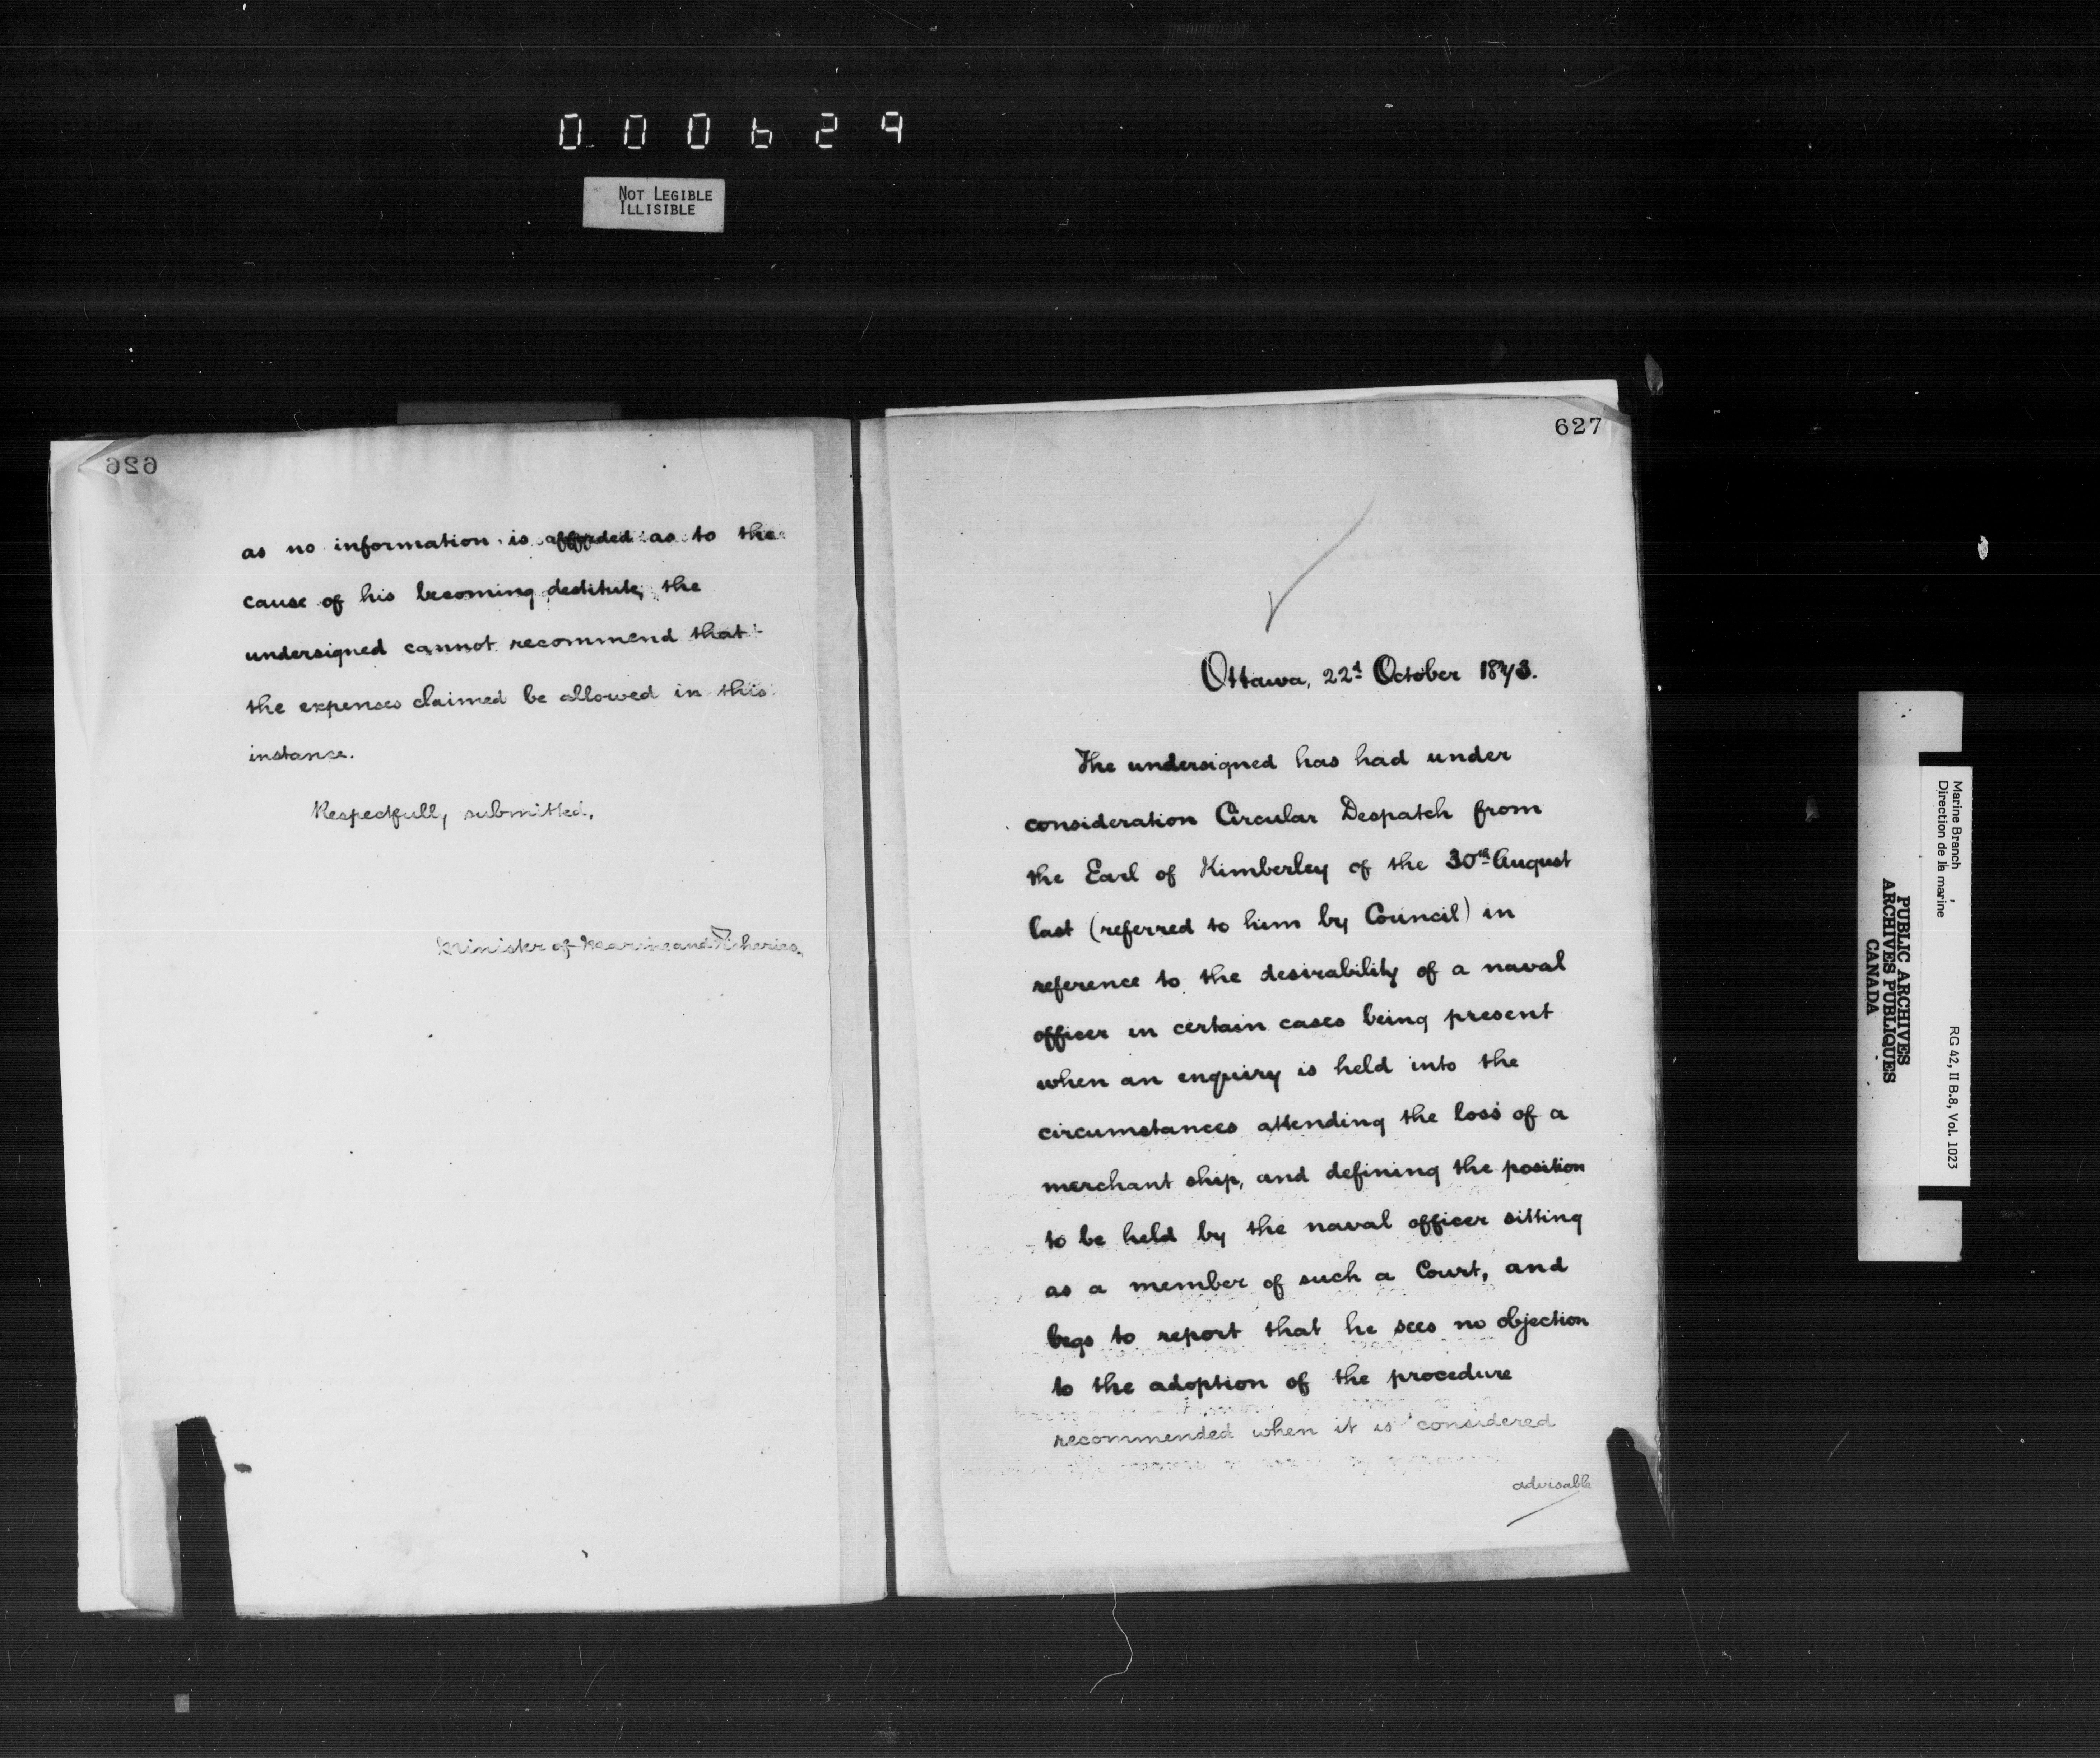 000629
NOT LEGIBLE
ILLISIBLE
626
as no information is afforded as to the
cause of his becoming destitute, the
undersigned cannot recommend that
the expenses claimed be allowed in this
instance.
Respectfully submitted,
Minister of Marine and Fisheries.
627
Ottawa, 22d October 1873.
The undersigned has had under
consideration Circular Despatch from
the Earl of Kimberley of the 30th August
last (referred to him by Council) in
reference to the desirability of a naval
officer in certain cases being present
when an enquiry is held into the
circumstances attending the loss of a
merchant ship, and defining the position
to be held by the naval officer sitting
as a member of such a Court, and
begs to report that he sees no objection
to the adoption of the procedure
recommended when it is considered
advisable
Marine Branch
Direction de la marine
RG 42, II B.8, Vol. 1023
PUBLIC ARCHIVES
ARCHIVES PUBLIQUES
CANADA